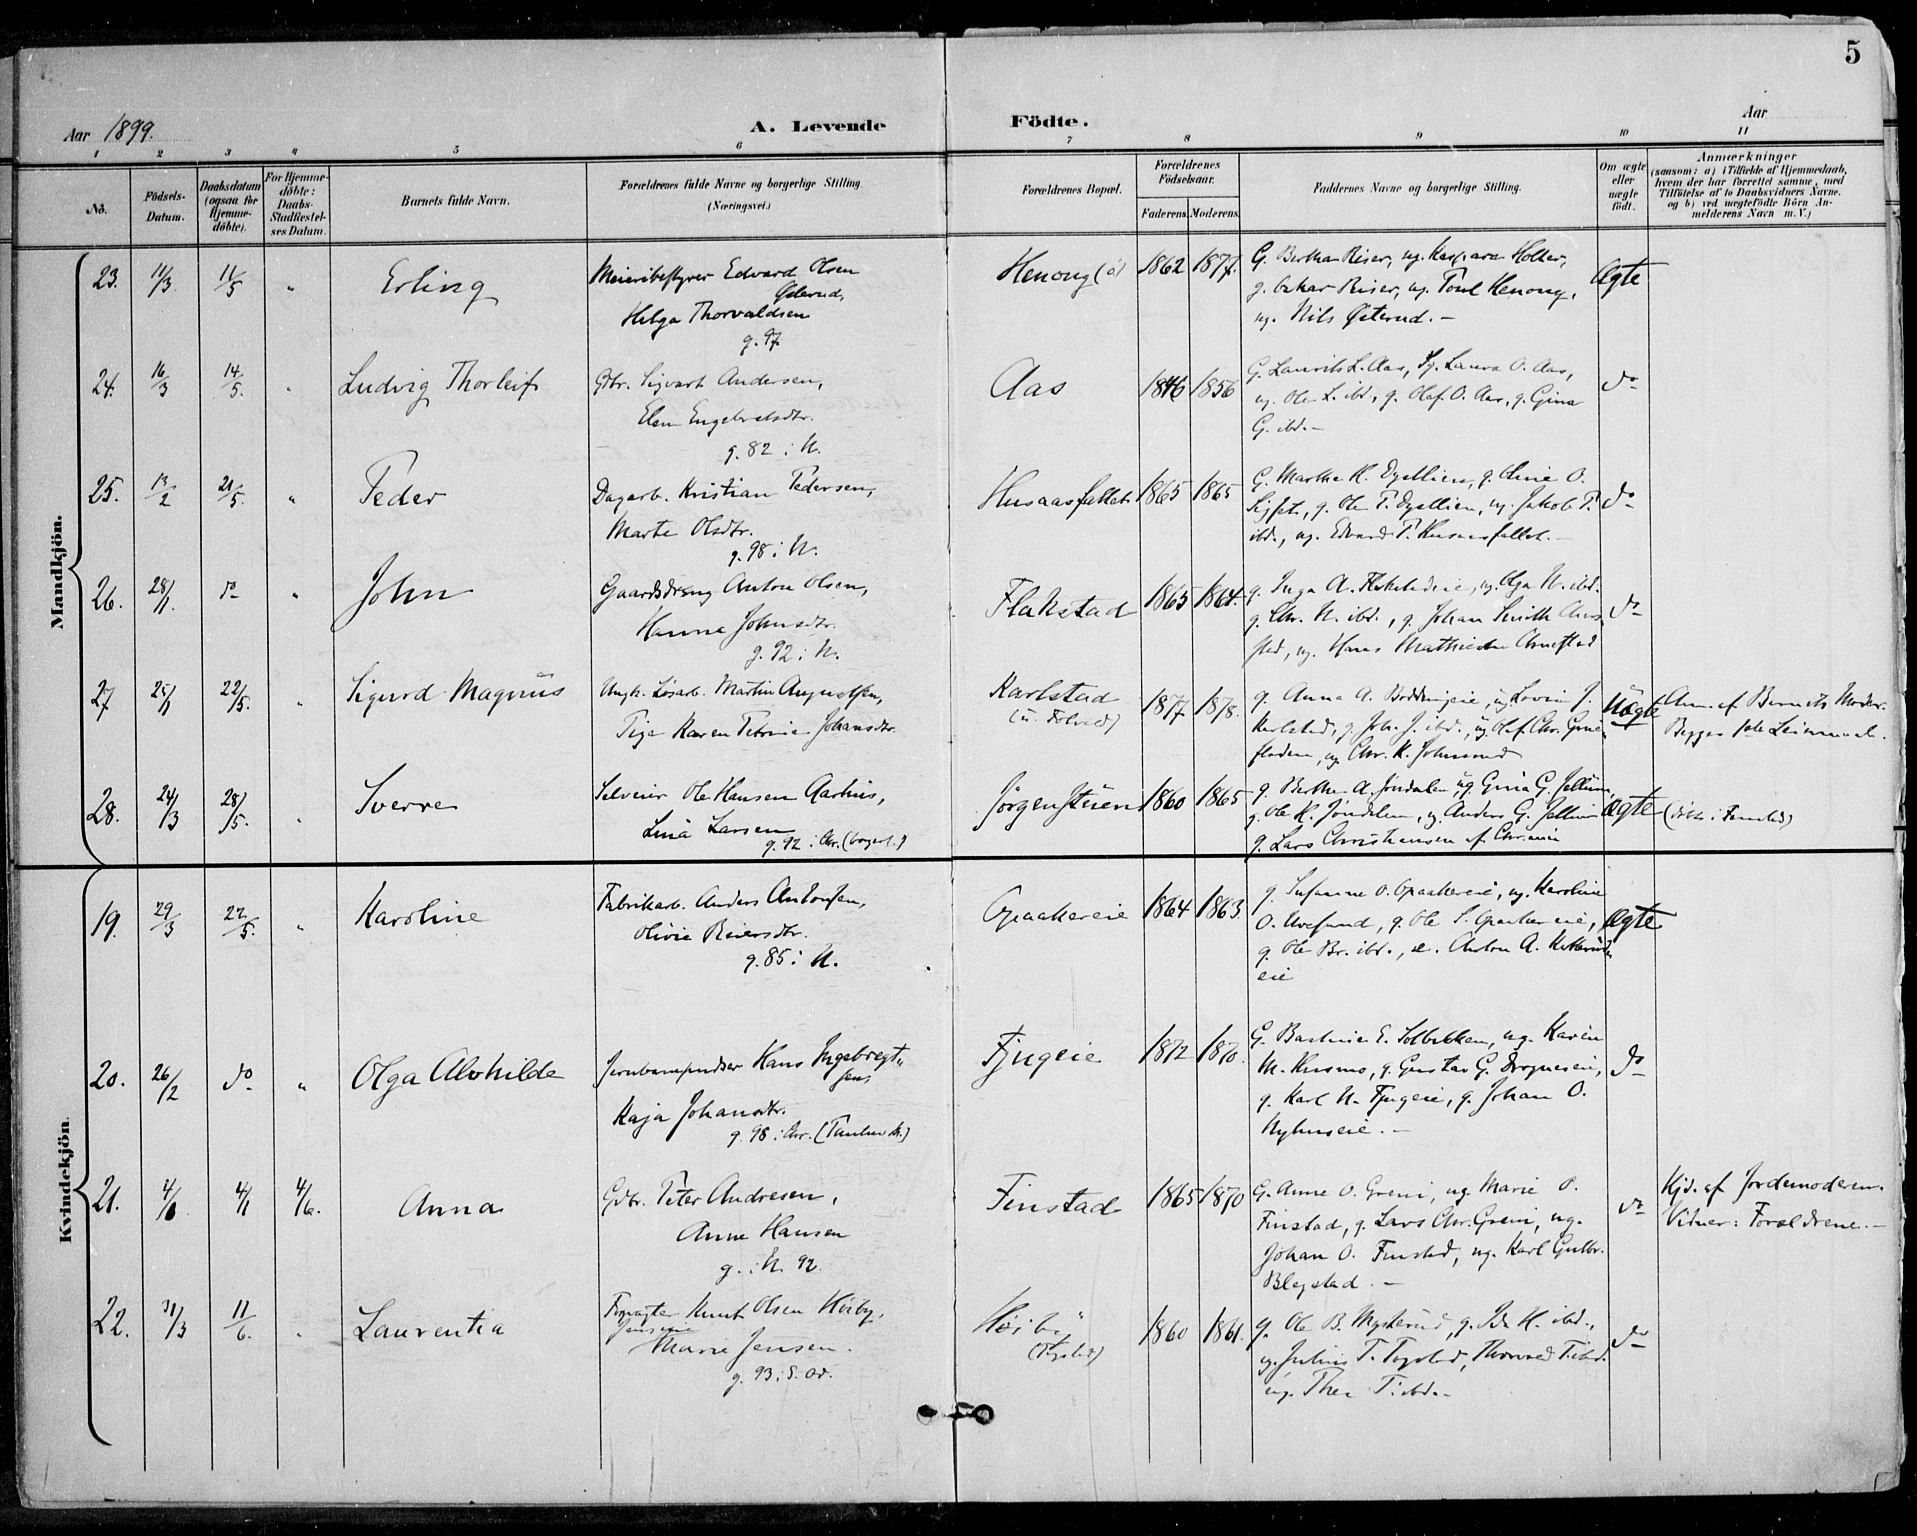 5
Aar 1899.
A. Levende Födte.
Aar
1 2 3 4 5 6 7 8 9 10 11
No.
Födsels-Datum.
Daabsdatum (ogsaa for Hjemmedöbte).
For Hjemmedöbte: Daabs-Stadfæstelses Datum.
Barnets fulde Navn.
Forældrenes fulde Navne og borgerlige Stilling.
(Næringsvei.)
Forældrenes Bopæl.
Forældrenes Födselsaar.
Faderens. Moderens.
Faddernes Navne og borgerlige Stilling.
Om ægte eller uægte födt.
Anmærkninger
(saasom: a) i Tilfælde af Hjemmedaab, hvem der har forrettet samme, med Tilföielse af to Daabsvidners Navne. og b) ved uægtefödte Börn Anmelderens Navn m. V.)
Mandkjön.
23. 11/3 11/5 " Erling
Meieribestyrer Edvard Olsen
Østerud,
Helga Thorvaldsen
g. 97.
Henong 1862 1877.
G. Bertha Riser, ug. Kaspara Holter,
g. Oskar Riser, ug. Poul Henong,
ug. Nils Østerud. —
Ægte
24. 16/3 14/5. " Ludvig Thorleif
Gbr. Sigvart Andersen,
Elen Engebretsdtr.
g. 82 i N.
Aas 1846 1856
G. Laurits L. Aas, Laura O. Aas,
ug. Ole L. ibd., g. Olaf O. Aas, g. Gina
G. ibd. —
do
25. 13/2 21/5. " Peder
Dagarb. Kristian Pedersen,
Marte Olsdtr.
g. 98 i N.
Husaasfallet 1865 1865
G. Marthe K. , g. Oline O.
g. Ole P. ug. Jakob P.
ibd., ug. Edvard P. Husaasfallet. —
do
26. 28/1. do " John
Gaardsdreng Anton Olsen,
Hanna Johnsdtr.
g. 92 i N.
Flakstad 1865 1864.
g. Inga A. ug. Olga N. ibd.
g. Chr. N. ibd., g. Johan Smith
ug. Hans Mathiesen
do
27 25/1 22/5. " Sigurd Magnus
Ungk. Løsarb. Martin Augustsen,
Pige Karen Petrine Johansdtr.
Karlstad
1877 1878.
g. Anna A. ug. Lovise J.
Karlstad, g. Joh. J. ibd., ug. Olaf Chr.
ug. Chr. K.
Uægte
Anm. af Barnets Moder.
Begges 1ste Leiermaal.
28. 24/3 28/5. " Sverre
Selveier Ole Hansen Aarhus,
Lina Larsen
g. 92 i Chr. (borgerl.)
Jørgenstuen 1860 1865
g. Berthe A. Jøndalen, ug. Gina G. Jellum,
g. Ole K. Jøndalen, ug. Anders G. Jellum
g. Lars Christiansen af Chr.ania
Ægte
Kvindekjön.
19. 29/3 22/5. " Karoline
Fabrikarb. Anders Antonsen,
Olivie Reiersdtr.
g. 85 i N.
Opaakereie 1864 1863.
g. Susanne O. Opaakereie, ug. Karoline
O. g. Ole S. Opaakereie,
g. Ole Br. ibd., e. Anton A.
eie
Ægte
20. 26/2 do " Olga Alvhilde
Jernbanepudser Hans Ingebregt-
sen
Kaja Johansdtr.
g. 98 i Chr.
Fjugeie 1872 1870.
G. Bastine E. Solbakken, ug. Karen
M. Husmo, g. Gustav G. Drogneseie,
g. Karl N. Fjugeie, g. Johan O.
Nyhuseie. —
do
21. 4/1 4/6. Anna
Gdbr. Peter Andresen,
Anne Hansen
g. i N. 92.
Finstad 1865 1870
G. Anne O. Greni, ug. Marie P.
Finstad, g. Lars Chr. Greni, ug.
Johan O. Finstad, ug. Karl Gulbr.
Blegstad. —
do
Kjd. af Jordemoderen.
Vidner: Forældrene. —
22. 31/3 11/6. " Laurentia
Knut Olsen Høiby,
Marie Jensen.
g. 93 i
Høiby
1860 1861.
g. Ole B. Mysterud, g. Ida H. ibd.,
ug. Julius T. Thorvald T. ibd.
ug. Thea T. ibd. —
do